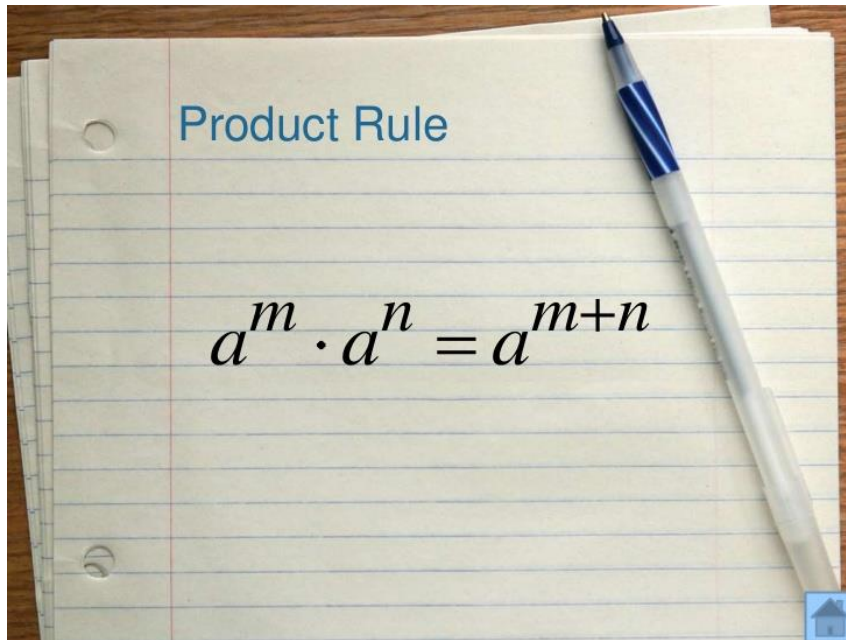 Product Rule
a^m · a^n = a^{m+n}